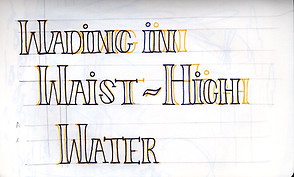 Wading in
Waist~High
Water